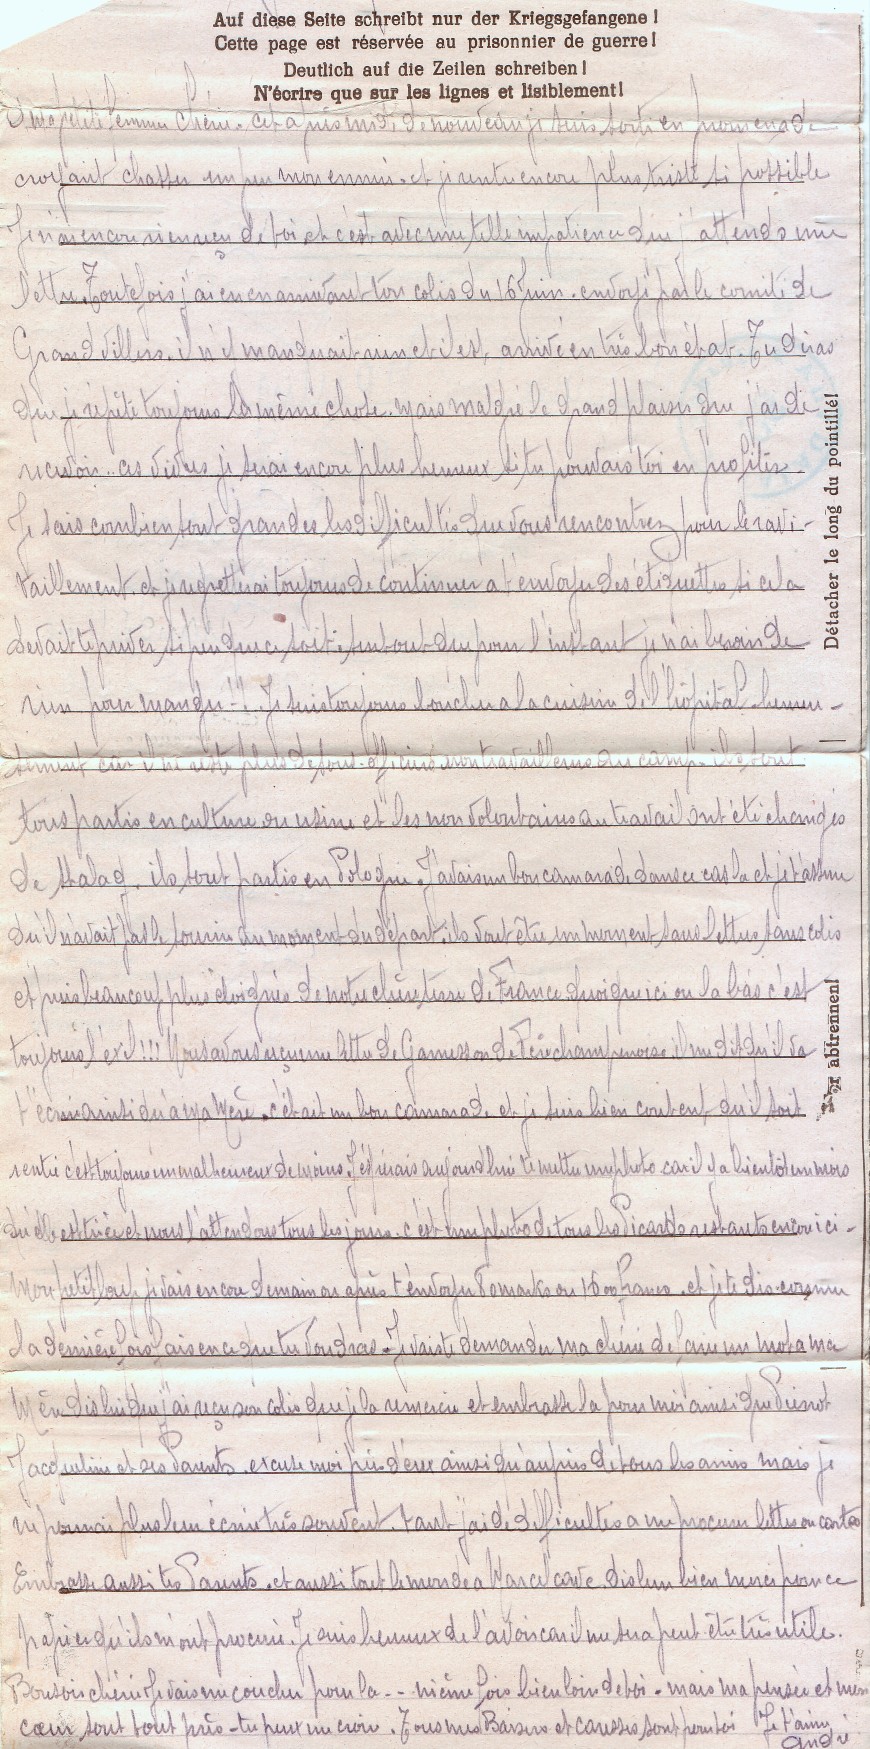 Auf diese Seite schreibt nur der Kriegsgefangene!
Cette page est réservée au prisonnier de guerre!
Deutlich auf die Zeilen schreiben!
N'écrire que sur les lignes et lisiblement!
Ma petite femme chérie. cet après midi de nouveau je suis sorti en promenade
croyant chasser un peu mon ennui. et je rentre encore plus triste si possible
Je n'ai encore rien reçu de toi et c'est avec une telle impatience que j'attends une
lettre. Toutefois j'ai eu en arrivant ton colis du 16 Juin. envoyé par le comité de
Grandvilliers. il n'il manquait rien et il est arrivé en très bon état. Tu diras
que je répète toujours la même chose. mais malgré le grand plaisir que j'ai de
recevoir ces vivres je serai encore plus heureux si tu pouvais toi en profiter.
Je sais combien sont grandes les difficultés que vous rencontrez pour le ravi-
taillement. et je regretterai toujours de continuer a t'envoyer des étiquettes si cela
devait te priver si peu que ce soit. surtout que pour l'instant je n'ai besoin de
rien pour manger!!! Je suis toujours boucher a la cuisine de l'hôpital. heureu-
sement car il ne reste plus de sous-officiers non travailleurs au camp. ils sont
tous partis en culture ou usine et les non volontaires au travail ont été changés
de stalag. ils sont partis en Pologne. J'avais un bon camarade dans ce cas la et je t'assure
qu'il n'avait pas le sourire au moment du départ. ils vont être un moment sans lettres sans colis
et puis beaucoup plus éloignés de notre chère terre de France quoique ici ou la bas c'est
toujours l'exil!!! Nous avons reçu une lettre de Garnesson de Fère champenoise il me dit qu'il va
t'écrire ainsi qu'a ma Mère. c'était un bon camarade et je suis bien content qu'il soit
rentré c'est toujours un malheureux de moins. J'espérais aujourd'hui te mettre une photo car il y a bientôt un mois
qu'elle est tirée et nous l'attendons tous les jours. c'est une photo de tous les Picards restants encore ici.
Mon petit loup je vais encore demain ou après t'envoyer 80 marks ou 1600 francs. et je te dis comme
la dernière fois fais en ce que tu voudras. Je vais te demander ma chérie de faire un mot a ma
Mère dis lui que j'ai reçu son colis que je la remercie et embrasse la pour moi ainsi que Pierrot
Jacqueline et ses Parents. excuse moi près d'eux ainsi qu'auprès de tous les amis mais je
ne pourrai plus leur écrire très souvent. tant j'ai de difficultés a me procurer lettres ou cartes
Embrasse aussi tes Parents. et aussi tout le monde a Marcelcave. dis leur bien merci pour ce
papier qu'ils m'ont procuré. Je suis heureux de l'avoir car il me sera peut être très utile.
Bonsoir chérie Je vais me coucher pour la -- nième fois bien loin de toi. mais ma pensée et mon
cœur sont tout près - tu peux me croire. Tous mes Baisers et caresses sont pour toi Je t'aime
André
Détacher le long du pointillé!
abtrennen!